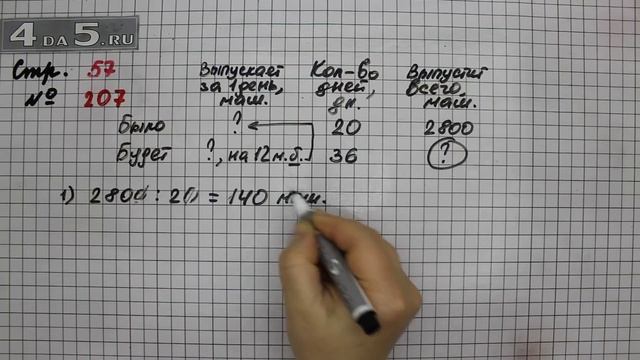 4 DA 5.RU
Стр. 57
№ 207
Выпускает за 1 день, маш.
Кол-во дней, дн.
Выпустит всего, маш.
Было ? 20 2800
Будет ?, на 12 м.б. 36 ?
1) 2800 : 20 = 140 маш.